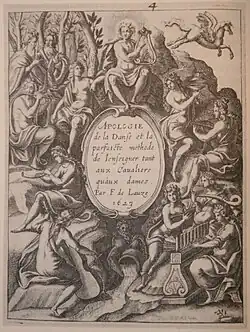 4
APOLOGIE
de la Danse et la
parfaicte methode
de l'enseigner tant
aux Cavaliers
quaux dames
Par F. de Lauze
1623